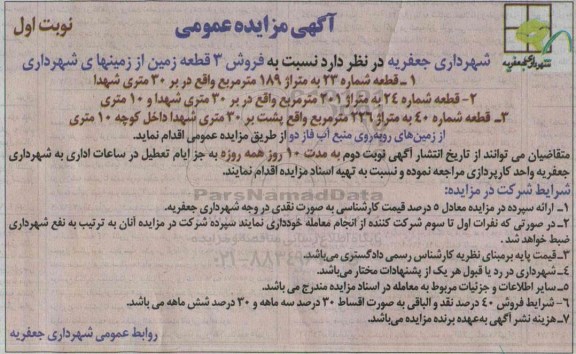 آگهی مزایده عمومی
نوبت اول
شهرداری جعفریه
شهرداری جعفریه در نظر دارد نسبت به فروش ۳ قطعه زمین از زمینها ی شهرداری
۱ ـ قطعه شماره ۲۳ به متراژ ۱۸۹ مترمربع واقع در بر ۳۰ متری شهدا
۲- قطعه شماره ۲۴ به متراژ ۲۰۱ مترمربع واقع در بر ۳۰ متری شهدا و ۱۰ متری
۳ـ قطعه شماره ۴۰ به متراژ ۲۲۶ مترمربع واقع پشت بر ۳۰ متری شهدا داخل کوچه ۱۰ متری
از زمین‌های روبه‌روی منبع آب فاز دو از طریق مزایده عمومی اقدام نماید.
متقاضیان می توانند از تاریخ انتشار آگهی نوبت دوم به مدت ۱۰ روز همه روزه به جز ایام تعطیل در ساعات اداری به شهرداری
جعفریه واحد کارپردازی مراجعه نموده و نسبت به تهیه اسناد مزایده اقدام نمایند.
شرایط شرکت در مزایده:
۱ـ ارائه سپرده در مزایده معادل ۵ درصد قیمت کارشناسی به صورت نقدی در وجه شهرداری جعفریه.
۲ـ در صورتی که نفرات اول تا سوم شرکت کننده از انجام معامله خودداری نمایند سپرده شرکت در مزایده آنان به ترتیب به نفع شهرداری
ضبط خواهد شد.
۳ـ قیمت پایه برمبنای نظریه کارشناس رسمی دادگستری می‌باشد.
۴ـ شهرداری در رد یا قبول هر یک از پشنهادات مختار می‌باشد.
۵ـ سایر اطلاعات و جزئیات مربوط به معامله در اسناد مزایده مندرج می باشد.
۶ـ شرایط فروش ۴۰ درصد نقد و الباقی به صورت اقساط ۳۰ درصد سه ماهه و ۳۰ درصد شش ماهه می باشد.
۷ـ هزینه نشر آگهی به‌عهده برنده مزایده می‌باشد.
روابط عمومی شهرداری جعفریه
ParsNamadData